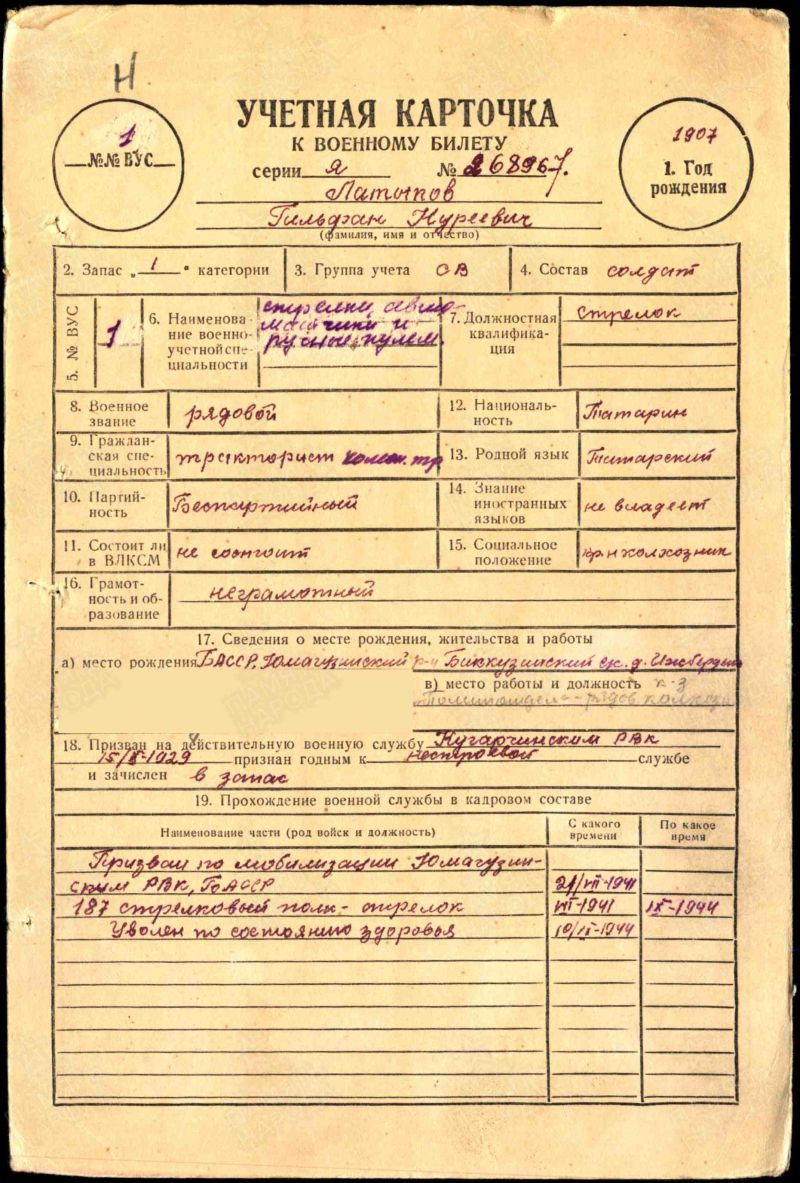 Н
УЧЕТНАЯ КАРТОЧКА
К ВОЕННОМУ БИЛЕТУ
1
№№ ВУС
серии Я № 268967.
1907
1. Год
рождения
Латыпов
Гильфан Нуреевич
(фамилия, имя и отчество)
2. Запас „1" категории
3. Группа учета СВ
4. Состав солдат
5. № ВУС
1
6. Наименова-
ние военно-
учетной спе-
циальности
стрелки, авто-
матчики и
ручные пулем.
7. Должностная
квалифика-
ция
стрелок
8. Военное
звание
рядовой
12. Националь-
ность
Татарин
9. Граждан-
ская спе-
циальность
тракторист
13. Родной язык
Татарский
10. Партий-
ность
Беспартийный
14. Знание
иностранных
языков
не владеет
11. Состоит ли
в ВЛКСМ
не состоит
15. Социальное
положение
кр-н колхозник
16. Грамот-
ность и об-
разование
неграмотный
17. Сведения о месте рождения, жительства и работы
а) место рождения БАССР, Юмагузинский р-н Биккузинский с/с. д.
в) место работы и должность к-з
18. Призван на действительную военную службу Кугарчинским РВК
1929 признан годным к нестроевой службе
и зачислен в запас
19. Прохождение военной службы в кадровом составе
Наименование части (род войск и должность)
С какого
времени
По какое
время
Призван по мобилизации Юмагузин-
ским РВК, БАССР 21/VII-1941
187 стрелковый полк - стрелок VII-1941 IX-1944
Уволен по состоянию здоровья 10/IX-1944